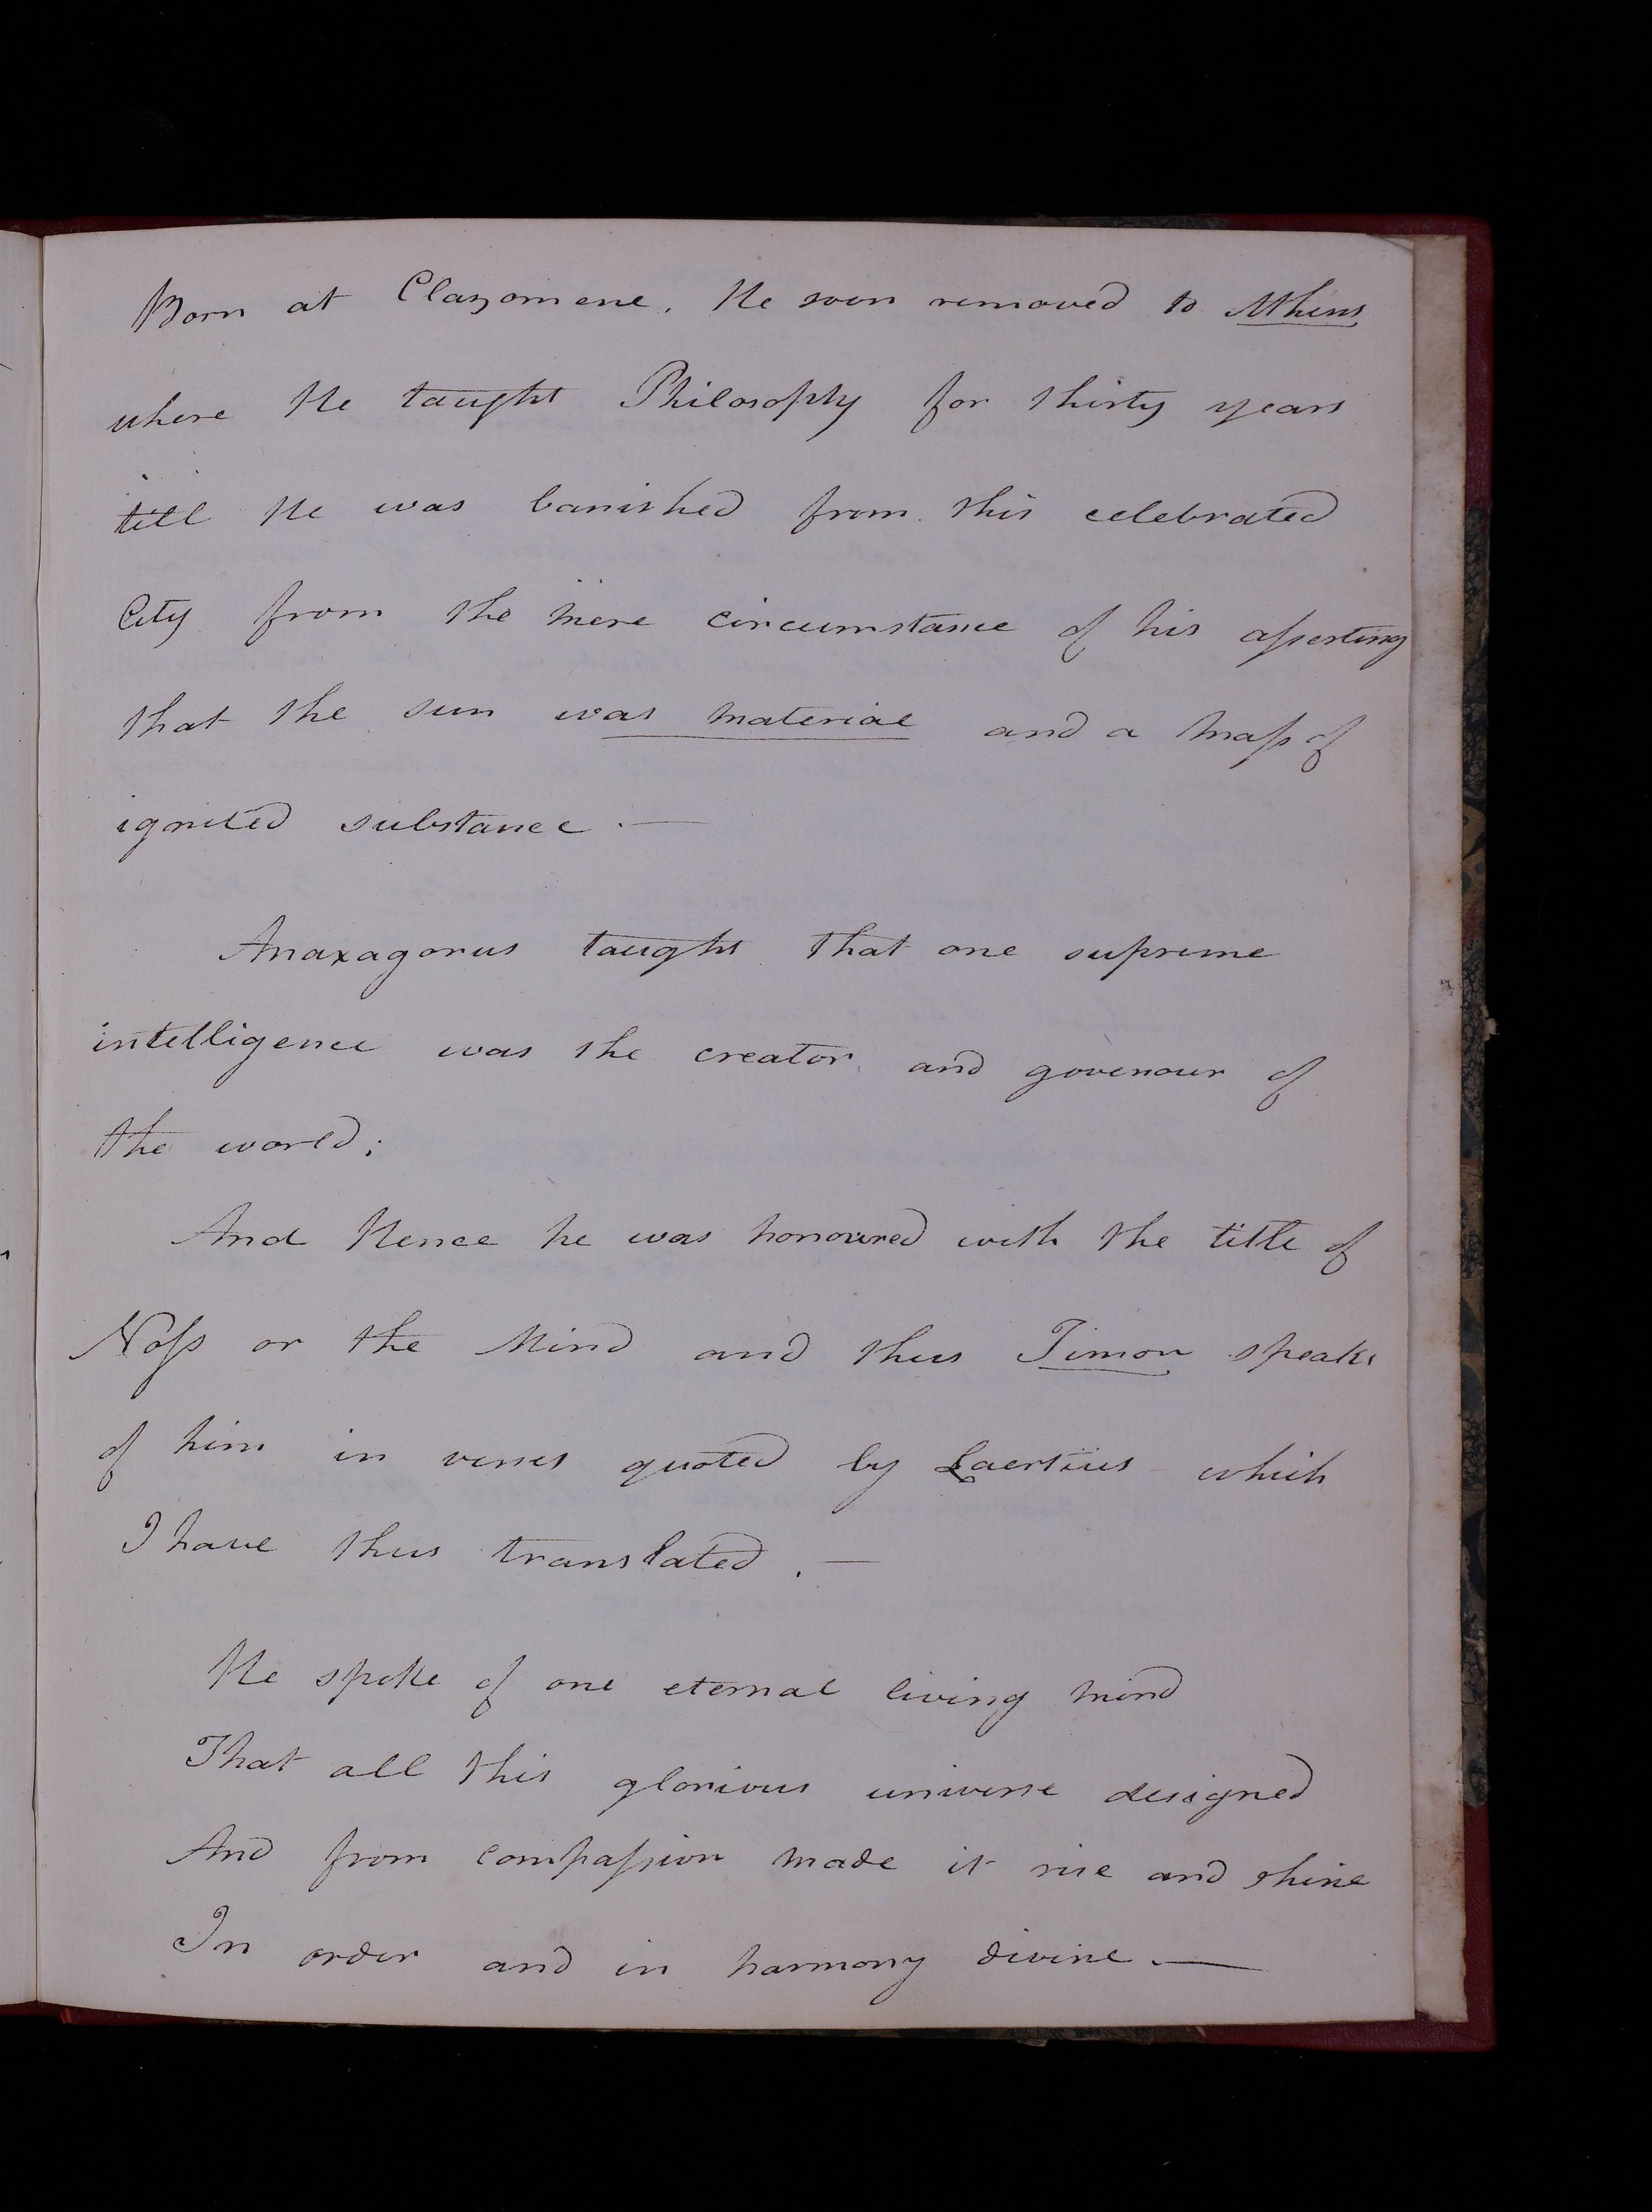 Born at Clazomene. He soon removed to Athens
where He taught Philosophy for thirty years
till He was banished from this celebrated
City from the mere circumstance of his asserting
that the sun was material and a mass of
ignited substance. —
Anaxagorus taught that one supreme
intelligence was the creator and govenour of
the world;
And Hence he was honoured with the title of
Noss or the Mind and thus Timon speaks
of him in verses quoted by Laertius which
I have thus translated. —
He spoke of one eternal living mind
That all this glorious universe designed
And from compassion made it rise and shine
In order and in harmony divine. —